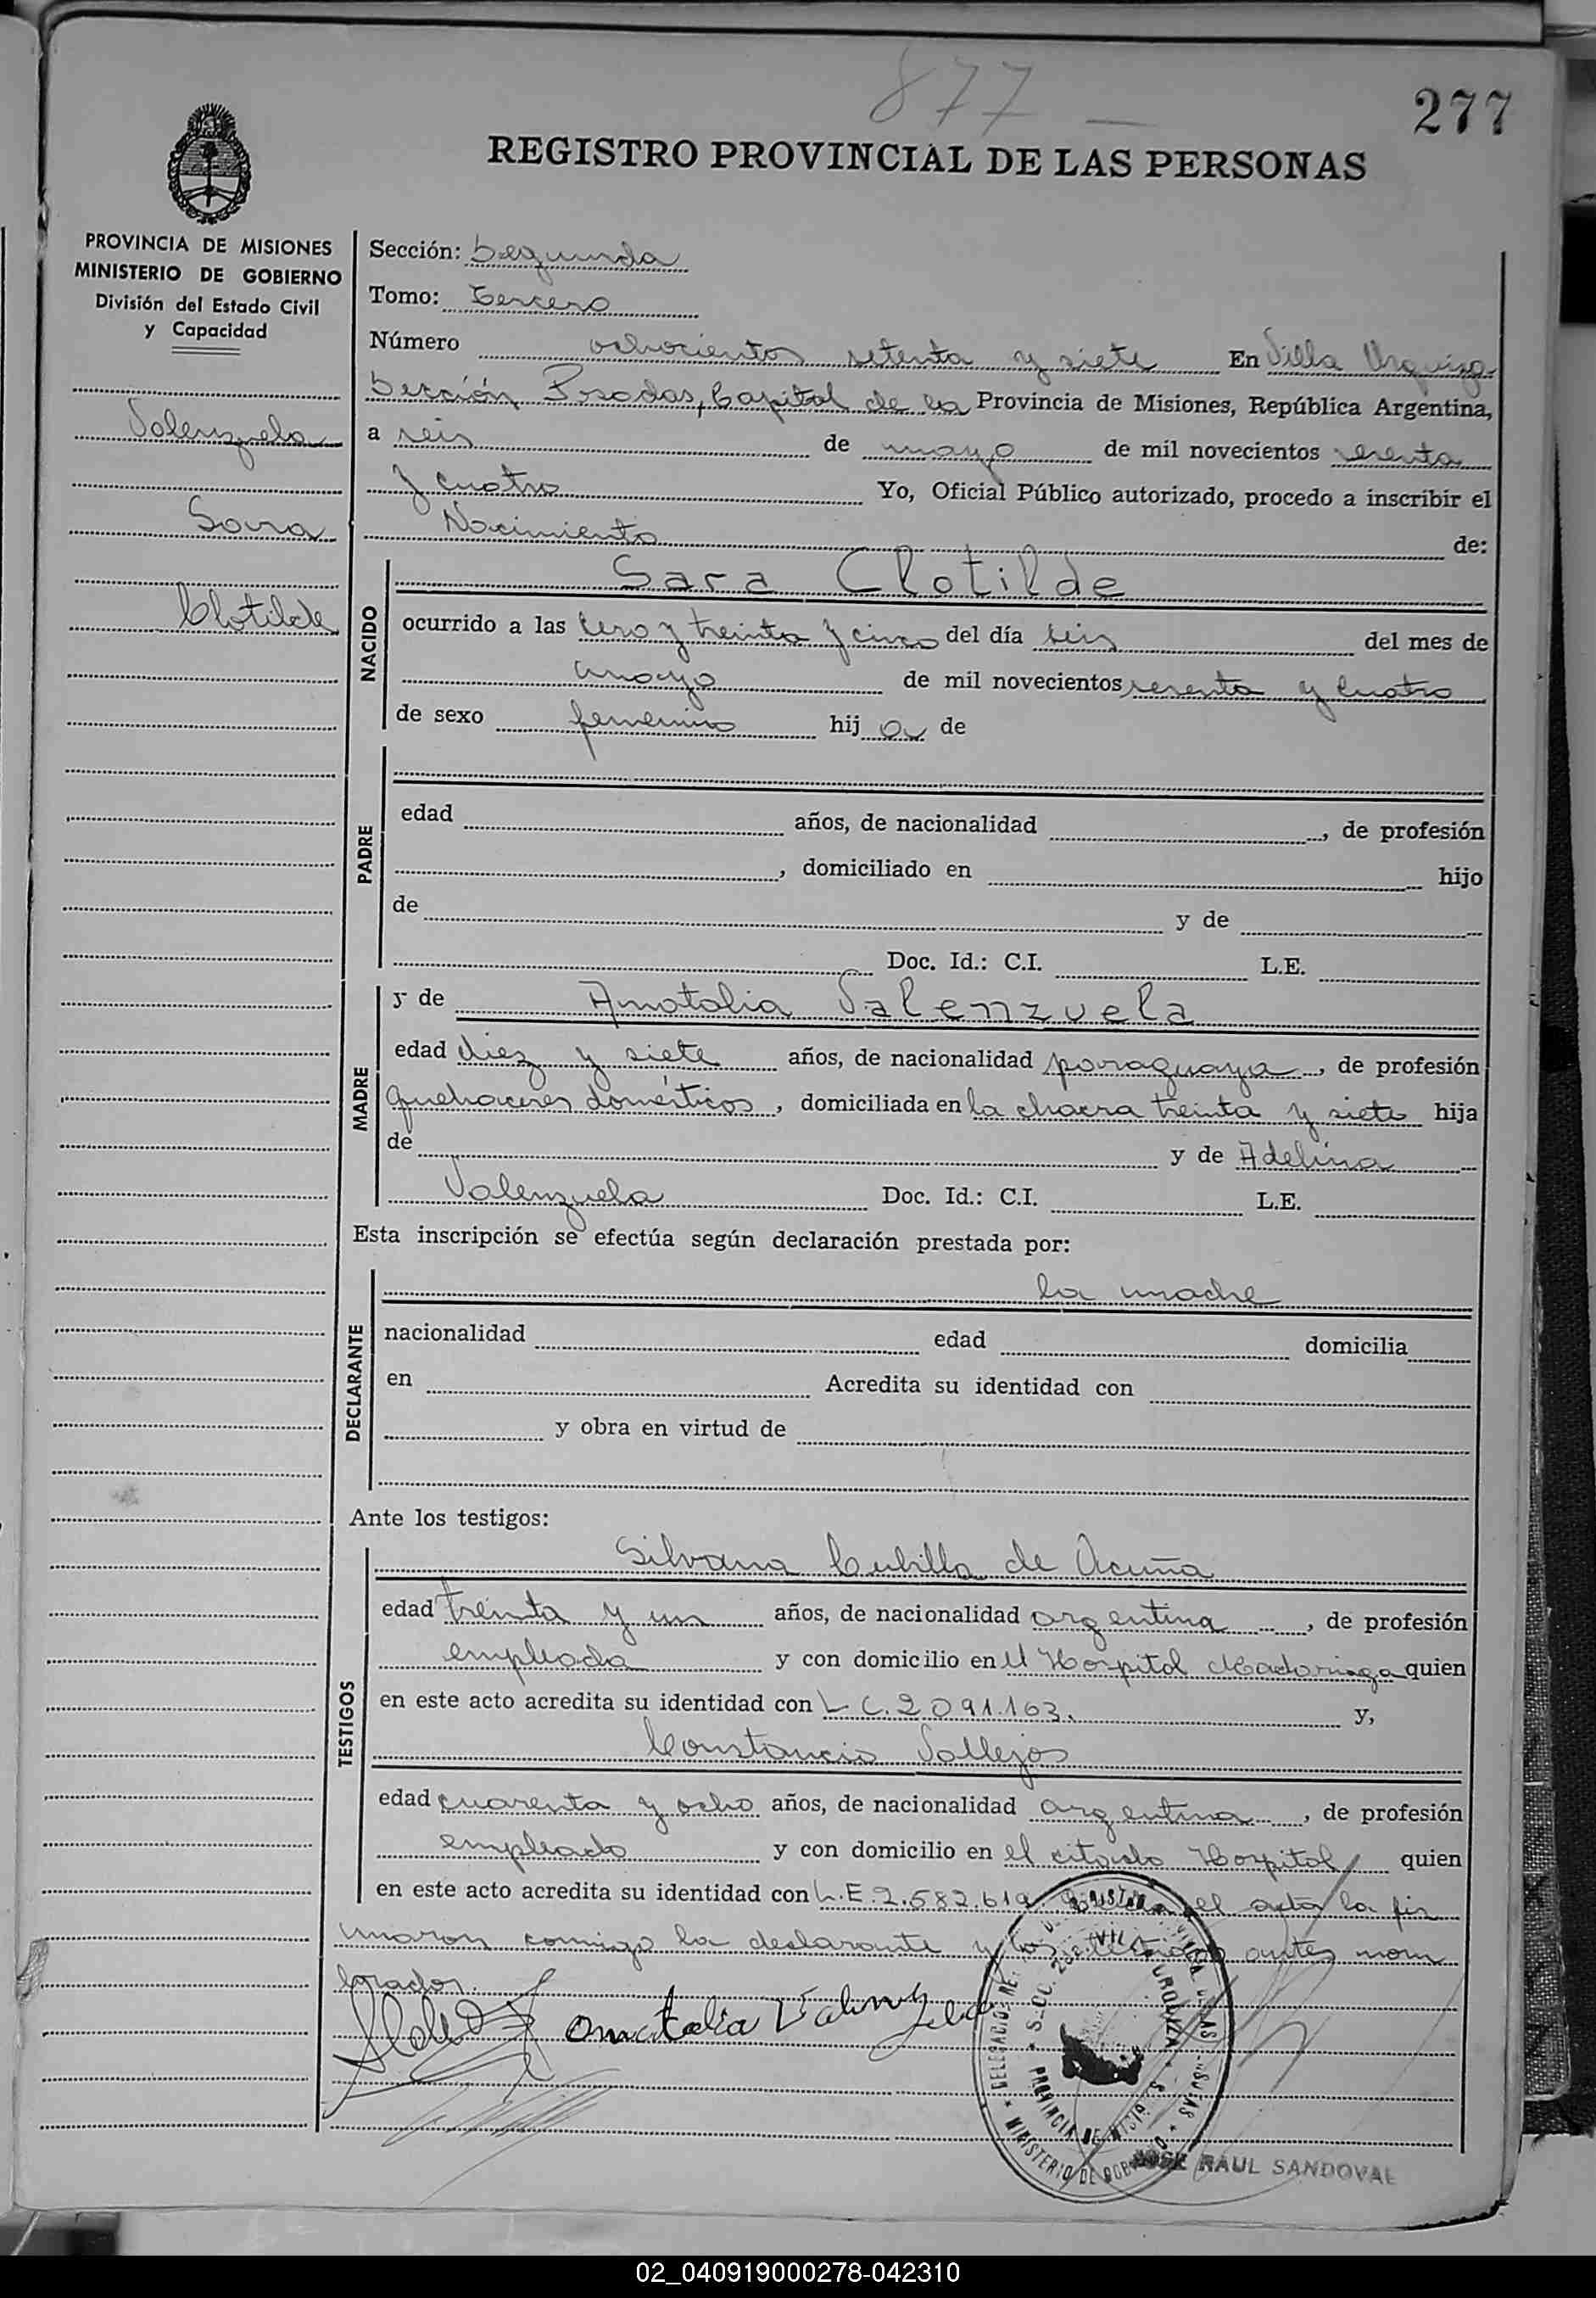 877 —
277
REGISTRO PROVINCIAL DE LAS PERSONAS
PROVINCIA DE MISIONES
MINISTERIO DE GOBIERNO
División del Estado Civil
y Capacidad
Valenzuela
Sara
Clotilde
Sección: Segunda
Tomo: Tercero
Número ochocientos setenta y siete En Villa Urquiza
Sección Posadas, Capital de la Provincia de Misiones, República Argentina,
a seis de mayo de mil novecientos sesenta
y cuatro Yo, Oficial Público autorizado, procedo a inscribir el
Nacimiento de:
NACIDO
Sara Clotilde
ocurrido a las cero y treinta y cinco del día seis del mes de
mayo de mil novecientos sesenta y cuatro
de sexo femenino hij a de
PADRE
edad años, de nacionalidad , de profesión
, domiciliado en hijo
de y de
Doc. Id.: C.I. L.E.
MADRE
y de Anatalia Valenzuela
edad diez y siete años, de nacionalidad paraguaya, de profesión
quehaceres domésticos, domiciliada en la chacra treinta y siete hija
de y de Adelina
Valenzuela Doc. Id.: C.I. L.E.
Esta inscripción se efectúa según declaración prestada por:
DECLARANTE
la madre
nacionalidad edad domicilia
en Acredita su identidad con
y obra en virtud de
Ante los testigos:
TESTIGOS
Silvana Cubilla de Acuña
edad treinta y un años, de nacionalidad argentina, de profesión
empleada y con domicilio en el Hospital Madariaga quien
en este acto acredita su identidad con L C. 2 091.163. y,
Constancio Vallejos
edad cuarenta y ocho años, de nacionalidad argentina, de profesión
empleado y con domicilio en el citado Hospital quien
en este acto acredita su identidad con L.E. 2.582.619 el acta la fir
maron conmigo la declarante y los testigos antes nom
brados.
Anatalia Valenzuela
SECC. URQUIZA
PROVINCIA DE MISIONES
MINISTERIO DE GOBIERNO
JOSE RAUL SANDOVAL
02_040919000278-042310